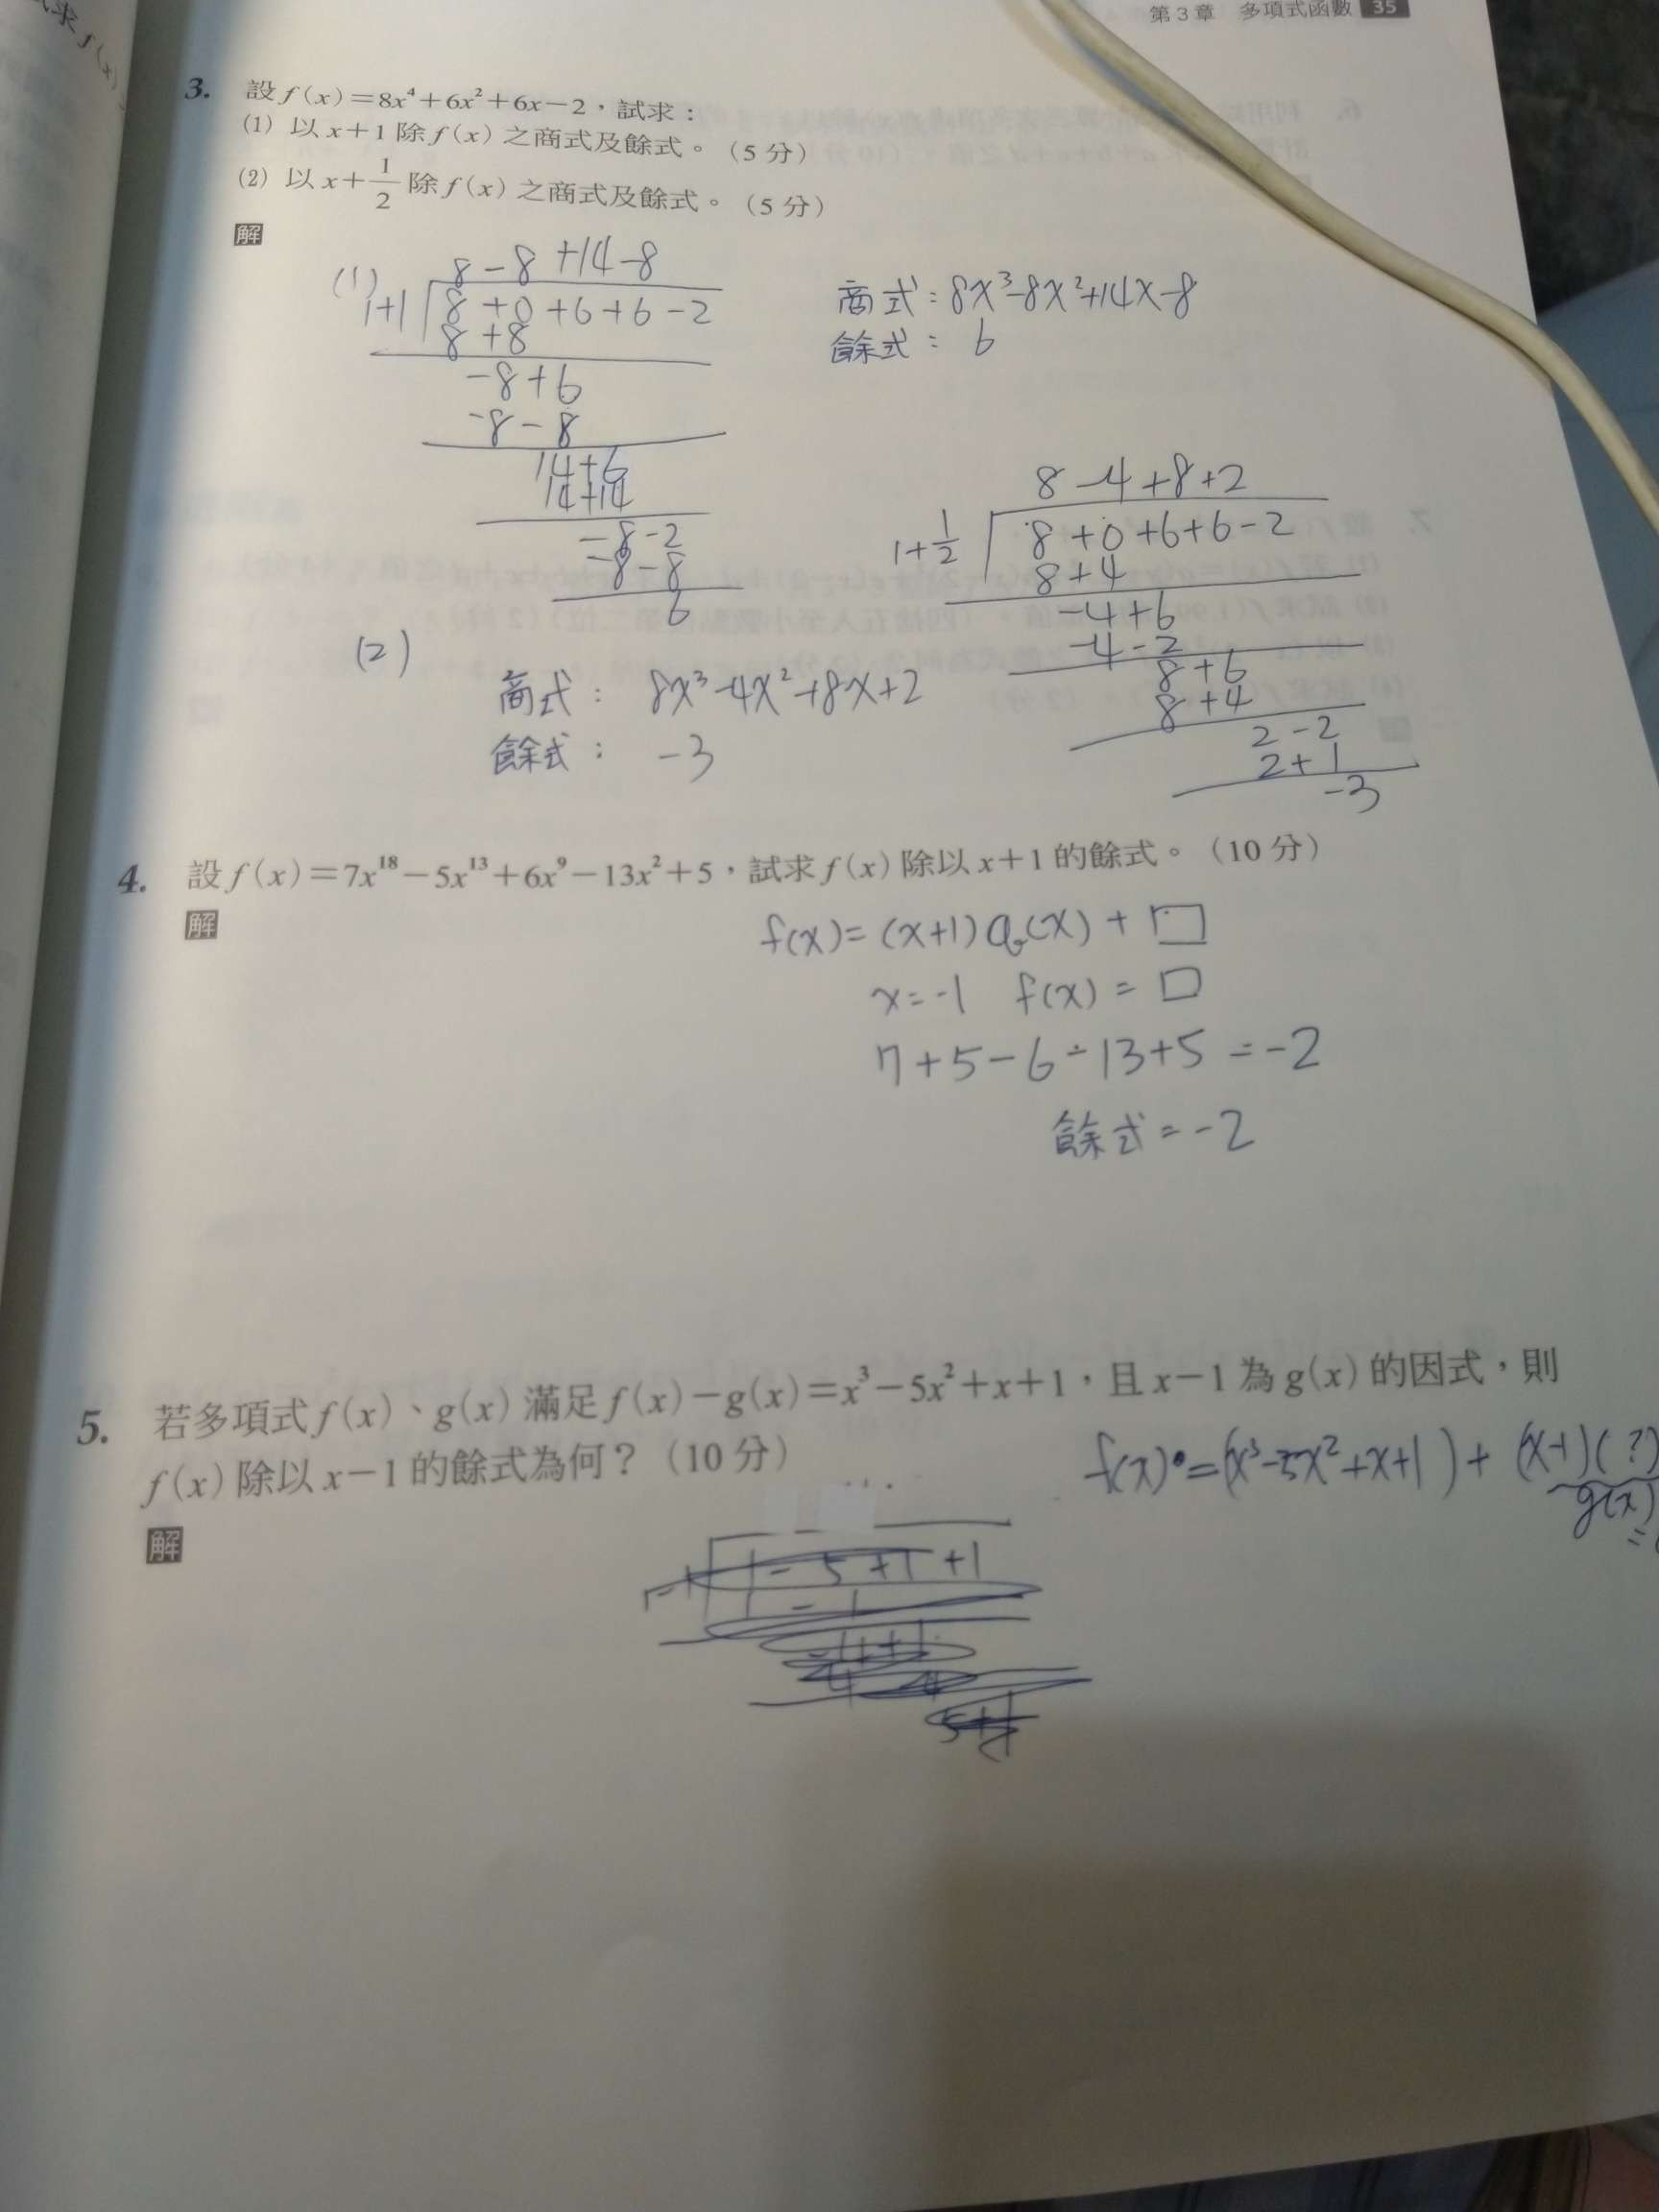 第3章 多項式函數 35
3. 設f(x)=8x⁴+6x²+6x-2,試求:
(1) 以x+1除f(x)之商式及餘式。(5分)
(2) 以x+1/2除f(x)之商式及餘式。(5分)
解
(1)
8-8+14-8
1+1 8+0+6+6-2
8+8
-8+6
-8-8
14+6
14+14
-8-2
-8-8
6
商式:8x³-8x²+14x-8
餘式:6
(2)
8-4+8+2
1+1/2 8+0+6+6-2
8+4
-4+6
-4-2
8+6
8+4
2-2
2+1
-3
商式:8x³-4x²+8x+2
餘式:-3
4. 設f(x)=7x¹⁸-5x¹³+6x⁹-13x²+5,試求f(x)除以x+1的餘式。(10分)
解
f(x)=(x+1)Q(x)+□
x=-1 f(x)=□
7+5-6-13+5=-2
餘式=-2
5. 若多項式f(x)、g(x)滿足f(x)-g(x)=x³-5x²+x+1,且x-1為g(x)的因式,則
f(x)除以x-1的餘式為何?(10分)
f(x)=(x³-5x²+x+1)+(x-1)(?)
g(x)
解
1-5+1+1
1-1